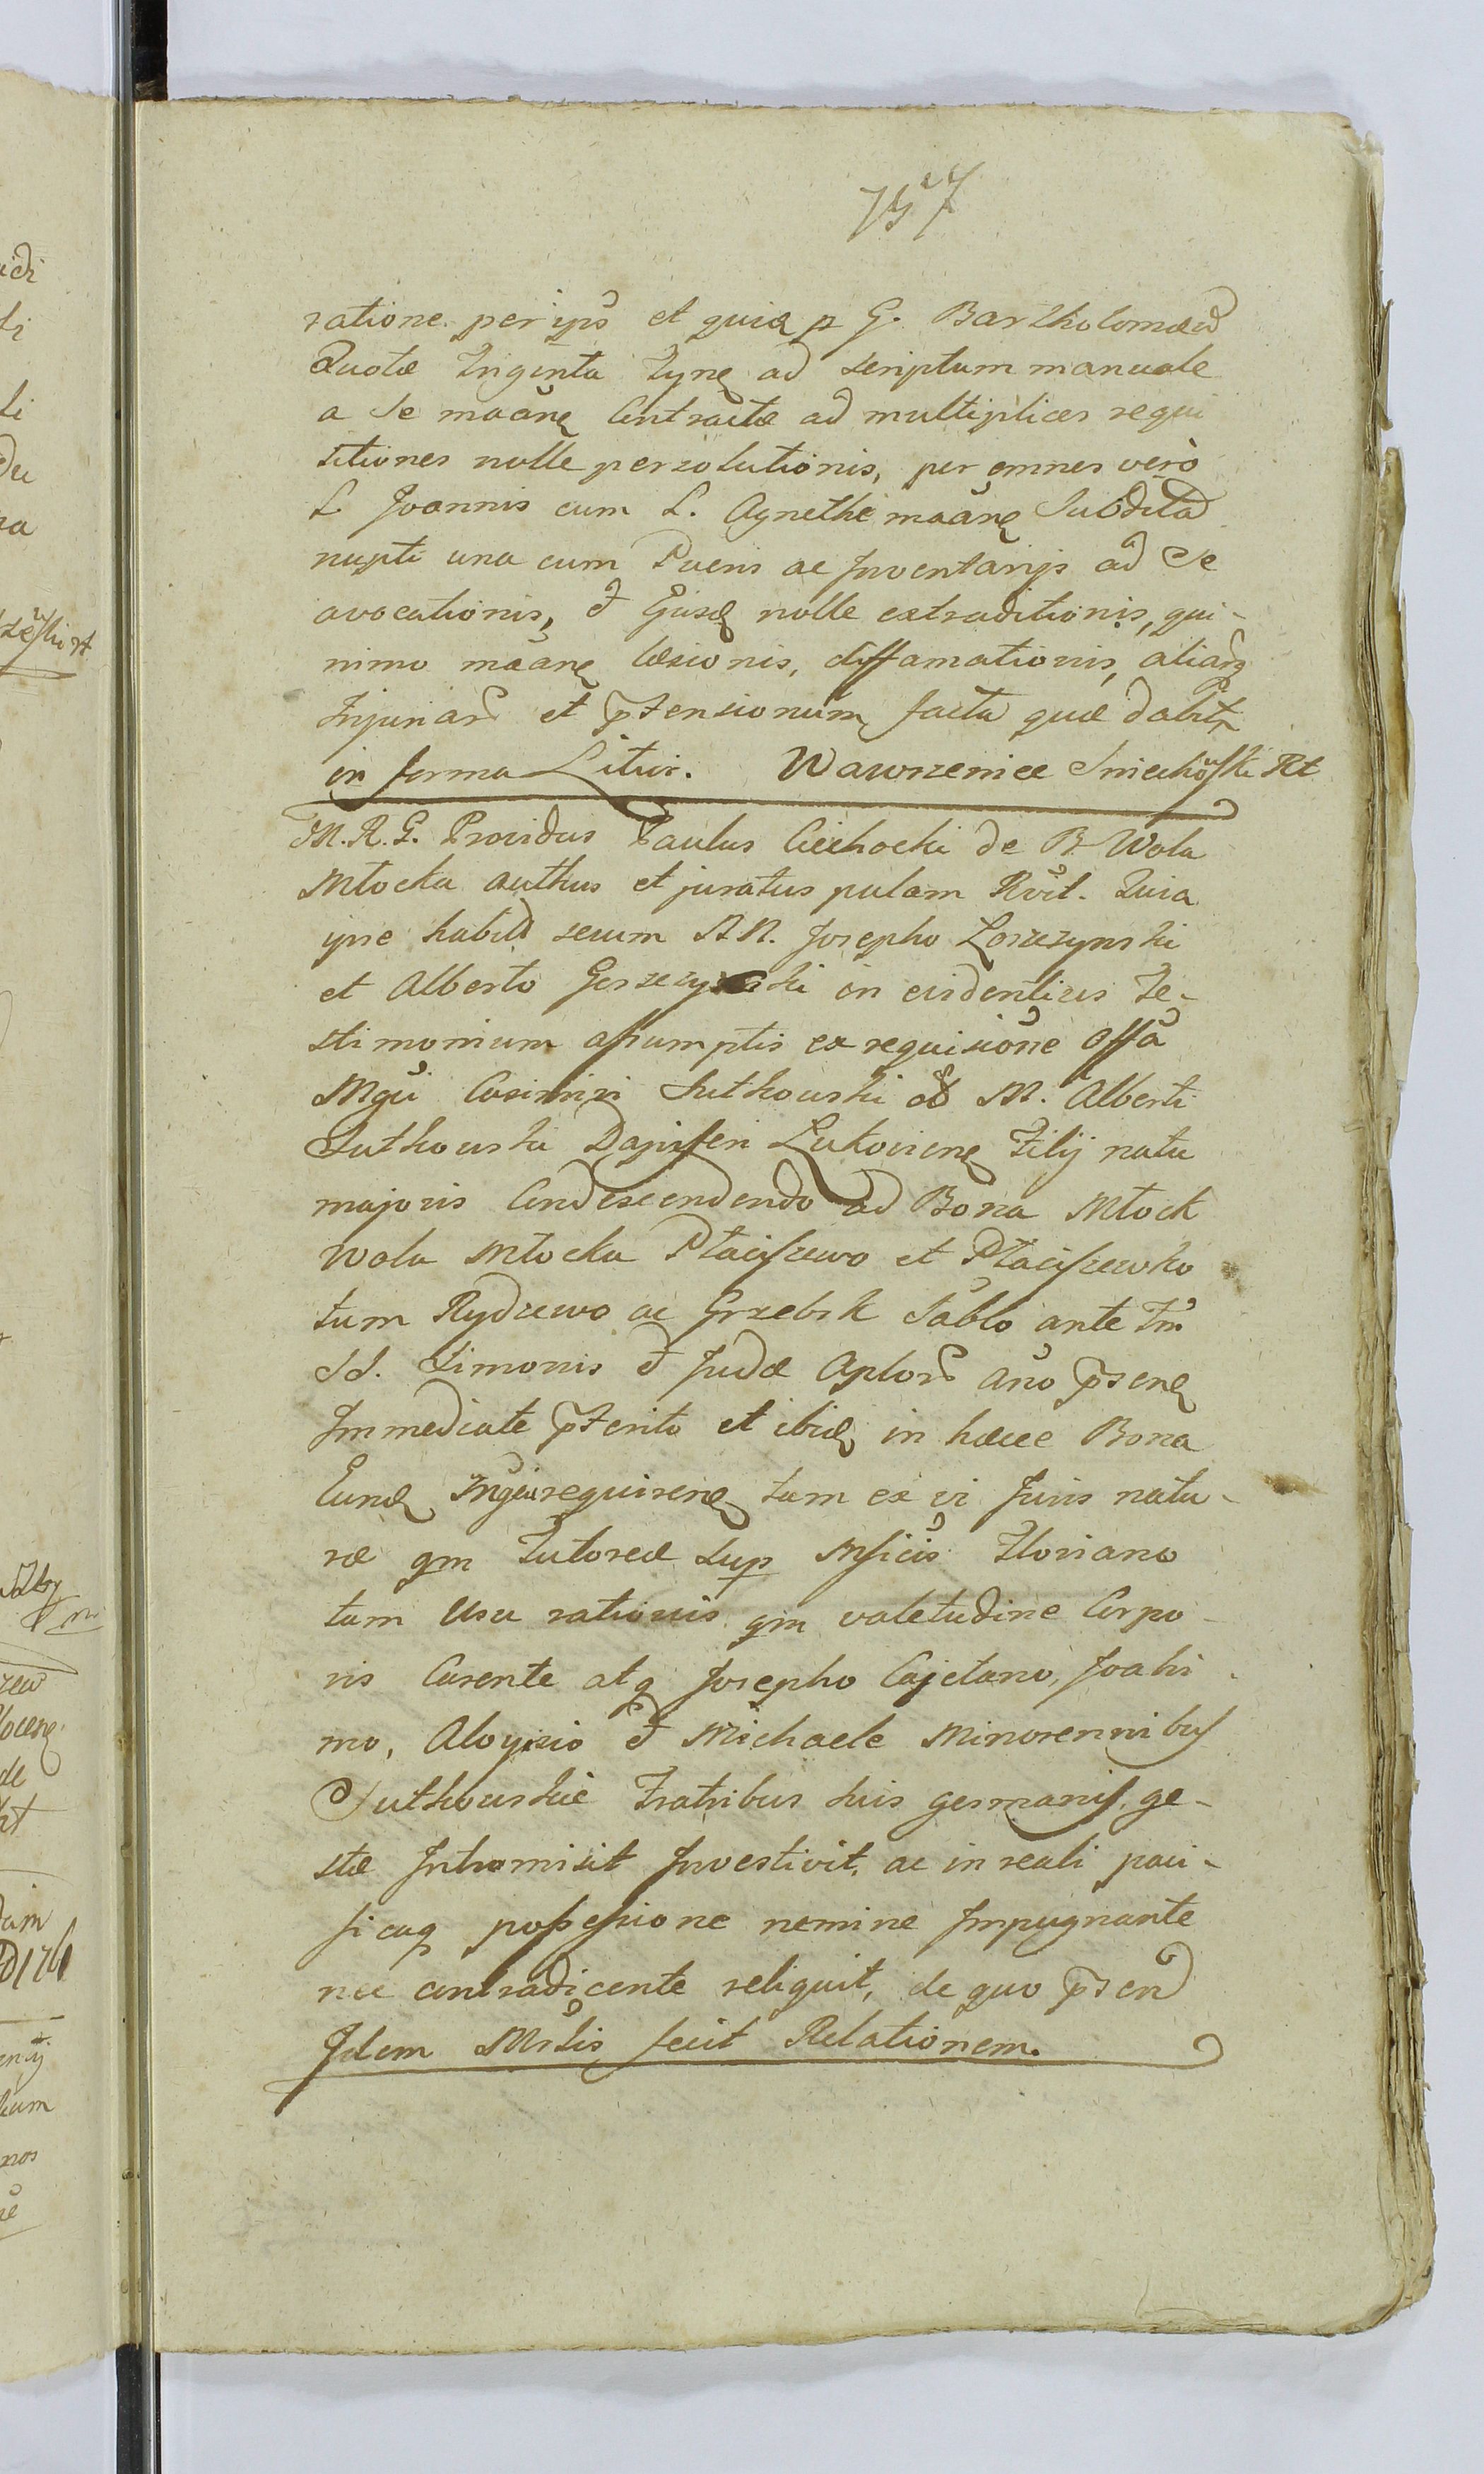 757
ratione per ips et quia p G. Bartholomæū
Quotæ Triginta Tynf ad scriptum manuale
a Se maãne Contractæ ad multiplices requi
sitiones nolle persolutionis, per omnes vero
L Joannis cum L. Agnethe maãne Subdita
nupti una cum Pueris ac Inventarijs ad Se
avocationis, et Ejusd nolle extraditionis, qui-
nimo maãne læsionis, diffamationis, aliarq
Injuriar et ptensionum facta quæ dabitr
in forma Litur. Wawrzeniec Sniechowski Rt
M. R. G. Providus Paulus Ciechocki de B. Wola
Młocka authus et juratus palam Rvit. Quia
ipse habitis secum NN. Josepho Lorczynski
et Alberto Gorzczynski in evidentius Te-
stimonium assumptis ex requisione Offa
Mgci Casimiri Sutkowski M. Alberti
Sutkowski Dapiferi Zukovienę Filij natu
majoris Condescendendo ad Bona Młock
Wola Młocka Ptaciszewo et Ptaciszewko
tum Rydzewo ac Grzebsk Sabbo ante Fm
SS. Simonis et Judæ Aplor Ano psenę
Immediate pterito et ibid in hæcce Bona
Eund Mgcū requirenę tam ex vi Juris natu-
ræ qm Tutoreæ sup Msicis Floriano
tam Usu rationis qm valetudine Corpo-
ris Carente atq Josepho Cajetano, Joahi-
mo, Aloysio et Michaele Minorennibus
Sutkowskie Fratribus suis germanis ge-
stæ Intromisit Investivit, ac in reali paci-
ficaq possessione nemine Impugnante
nec contradicente reliquit, de quo psend
Idem Mrlis fecit Relationem.